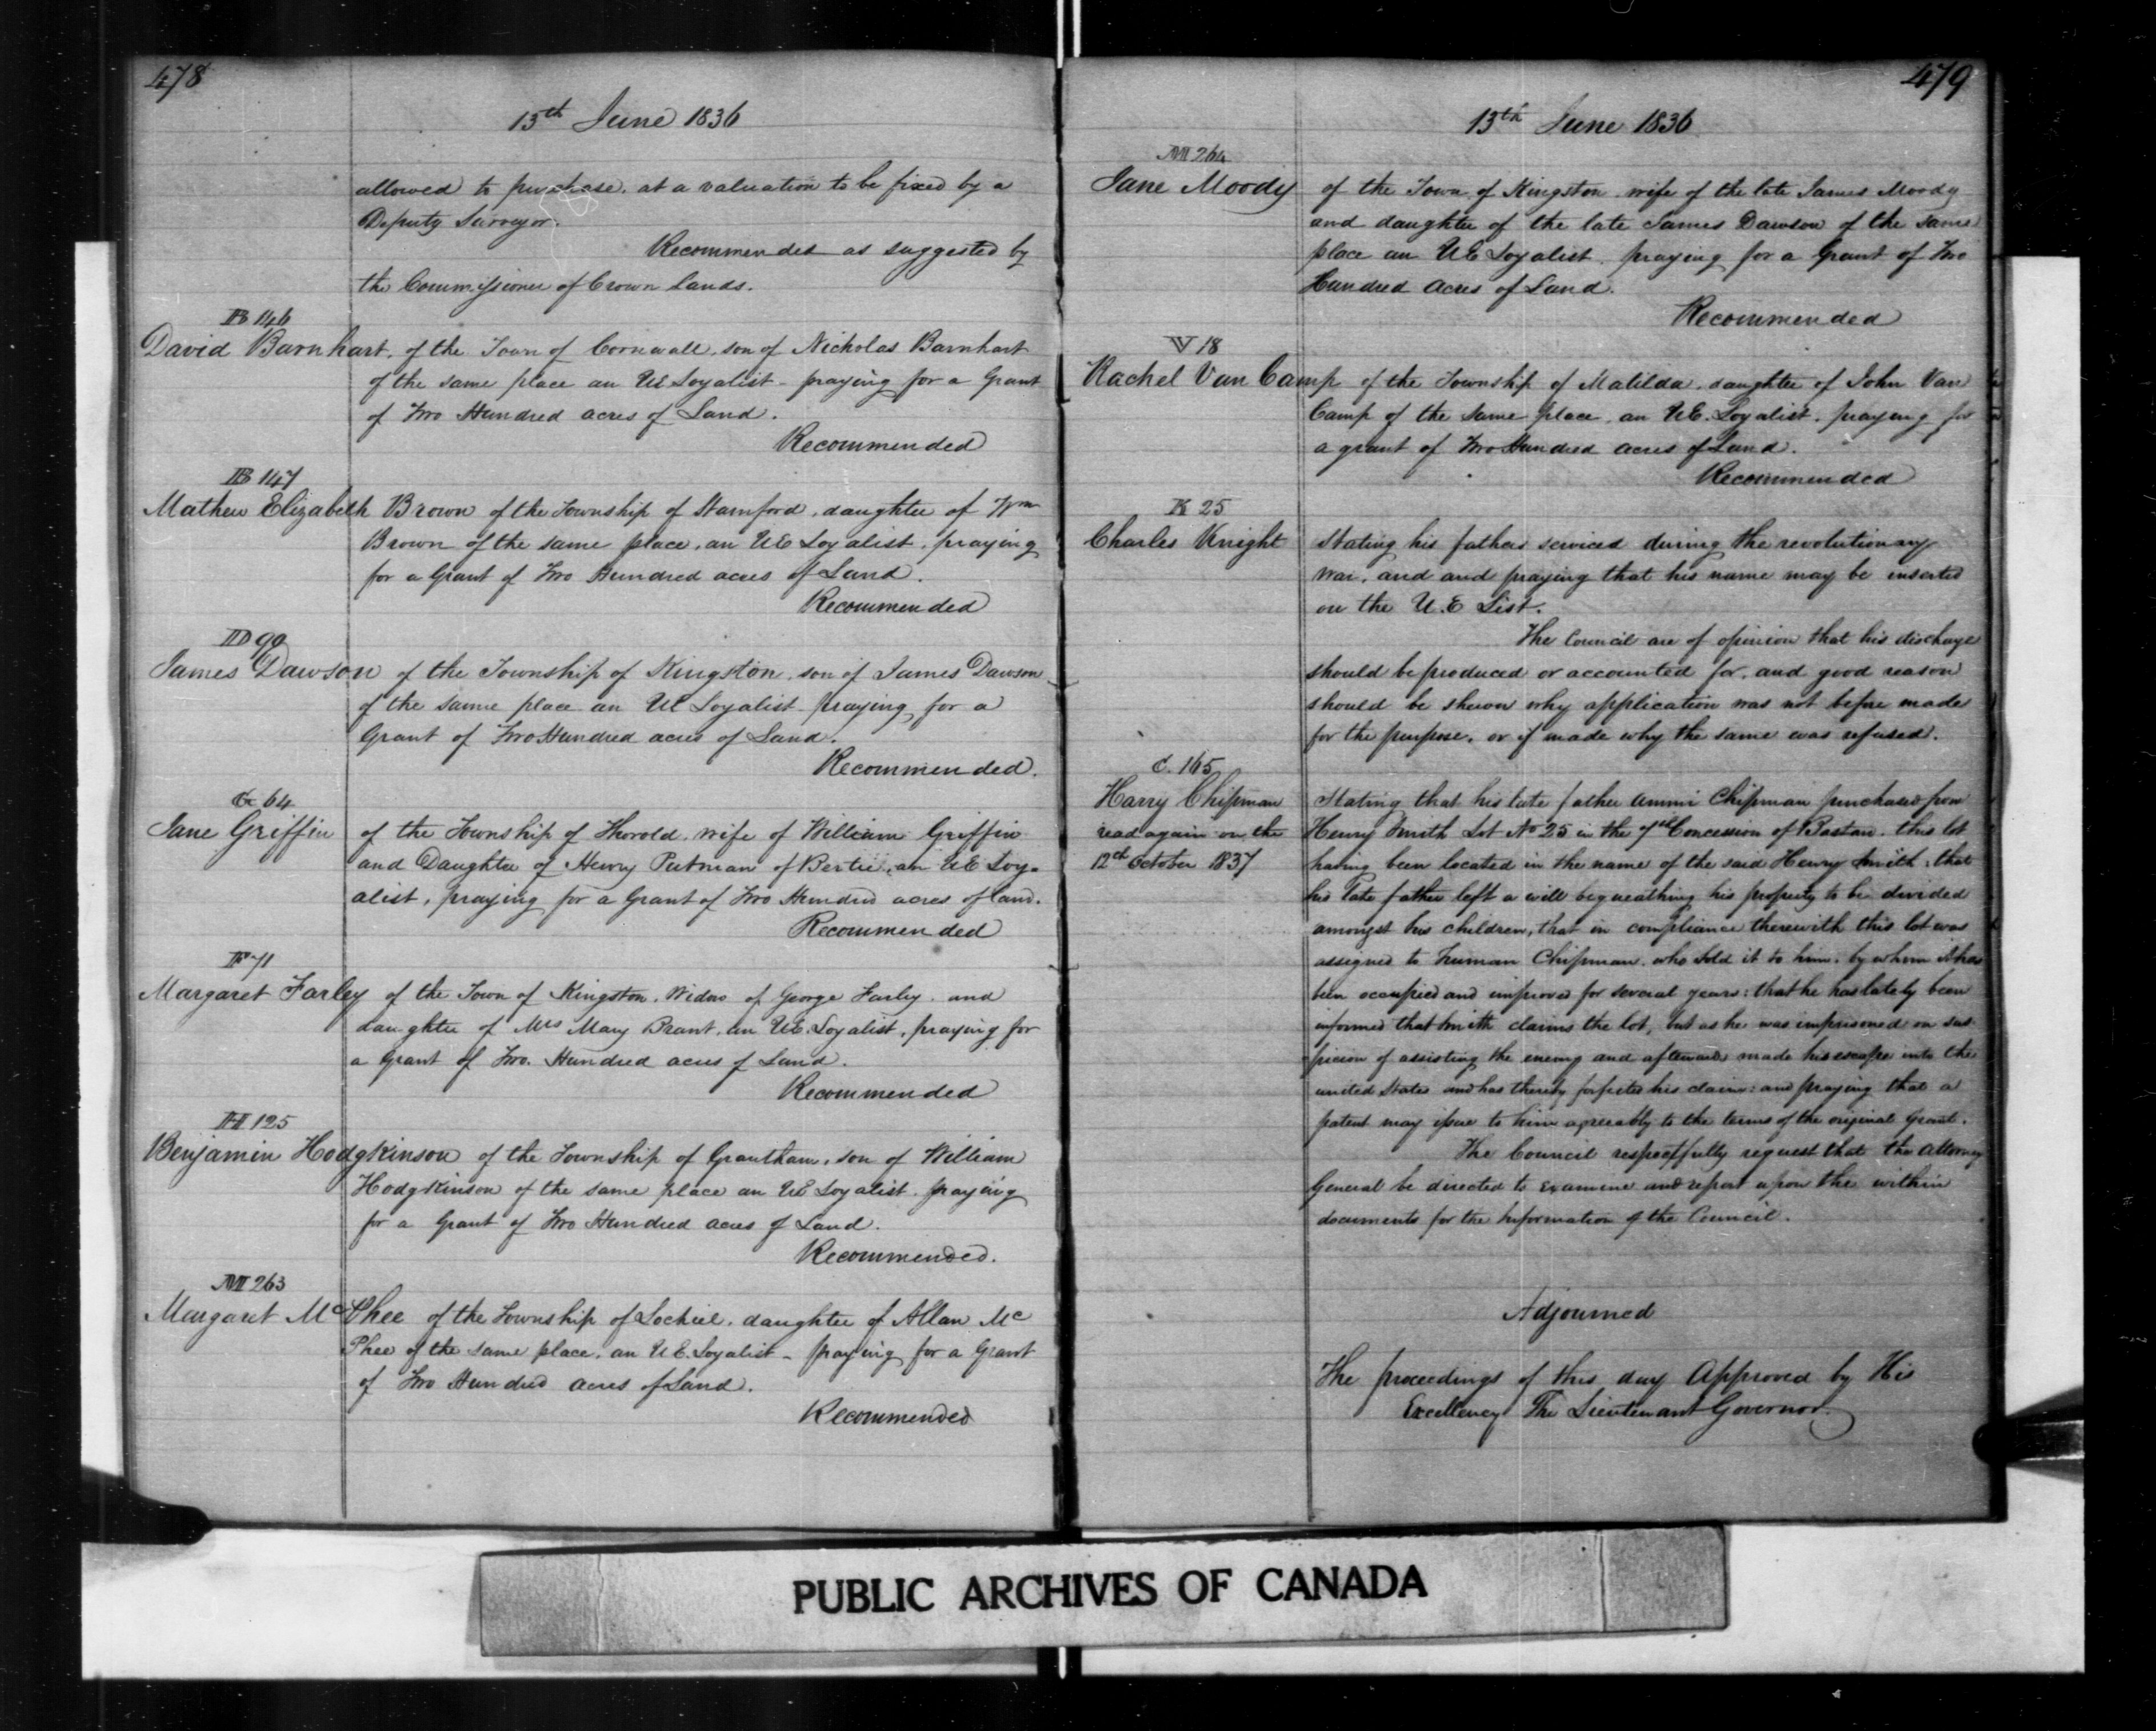 478
13th June 1836
allowed to purchase. at a valuation to be fixed by a
Deputy Surveyor.
Recommended as suggested by
the Commissioner of Crown Lands.
B 146
David Barnhart, of the Town of Cornwall, son of Nicholas Barnhart
of the same place an UE Loyalist - praying for a Grant
of Two Hundred acres of Land.
Recommended
B 147
Mathew Elizabeth Brown of the Township of Stamford, daughter of Wm
Brown of the same place, an UE Loyalist, praying
for a Grant of Two Hundred acres of Land.
Recommended
D 90
James Dawson of the Township of Kingston, son of James Dawson
of the same place an UE Loyalist praying for a
Grant of Two Hundred acres of Land.
Recommended.
G 64
Jane Griffin of the Township of Thorold, wife of William Griffin
and Daughter of Henry Putman of Bertie, an UE Loy-
alist, praying for a Grant of Two Hundred acres of land.
Recommended
F 71
Margaret Farley of the Town of Kingston, Widow of George Farley, and
daughter of Mrs Mary Brant, an UE Loyalist, praying for
a Grant of Two Hundred acres of Land.
Recommended
H 125
Benjamin Hodgkinson of the Township of Grantham, son of William
Hodgkinson of the same place an UE Loyalist. praying
for a Grant of Two Hundred acres of Land.
Recommended.
M 263
Margaret McPhee of the Township of Lochiel, daughter of Allan Mc
Phee of the same place, an U.E. Loyalist - praying for a Grant
of Two Hundred acres of Land.
Recommended
479
13th June 1836
M 264
Jane Moody of the Town of Kingston wife of the late James Moody
and daughter of the late James Dawson of the same
place an UE Loyalist praying for a Grant of Two
Hundred Acres of Land.
Recommended
V 18
Rachel Van Camp of the Township of Matilda, daughter of John Van
Camp of the same place, an UE. Loyalist. praying for
a grant of Two Hundred acres of Land.
Recommended
K 25
Charles Knight Stating his fathers services during the revolutionary
war, and and praying that his name may be inserted
on the U.E List.
The Council are of opinion that his discharge
should be produced or accounted for, and good reason
should be shewn why application was not before made
for the purpose, or if made why the same was refused.
C. 165
Harry Chipman Stating that his late father Ammi Chipman purchased from
read again on the Henry Smith Lot No 25 in the 7th Concession of Bastard. this lot
12th October 1837 having been located in the name of the said Henry Smith: that
his late father left a will bequeathing his property to be divided
amongst his children, that in compliance therewith this lot was
assigned to Truman Chipman, who sold it to him, by whom it has
been occupied and improved for several years: that he has lately been
informed that Smith claims the lot, but as he was imprisoned on sus-
picion of assisting the enemy and afterwards made his escape into the
united States and has thereby forfeited his claim: and praying that a
patent may issue to him agreeably to the terms of the original Grant.
The Council respectfully request that the Attorney
General be directed to examine and report upon the within
documents for the information of the Council.
Adjourned
The proceedings of this day Approved by His
Excellency The Lieutenant Governor.
PUBLIC ARCHIVES OF CANADA